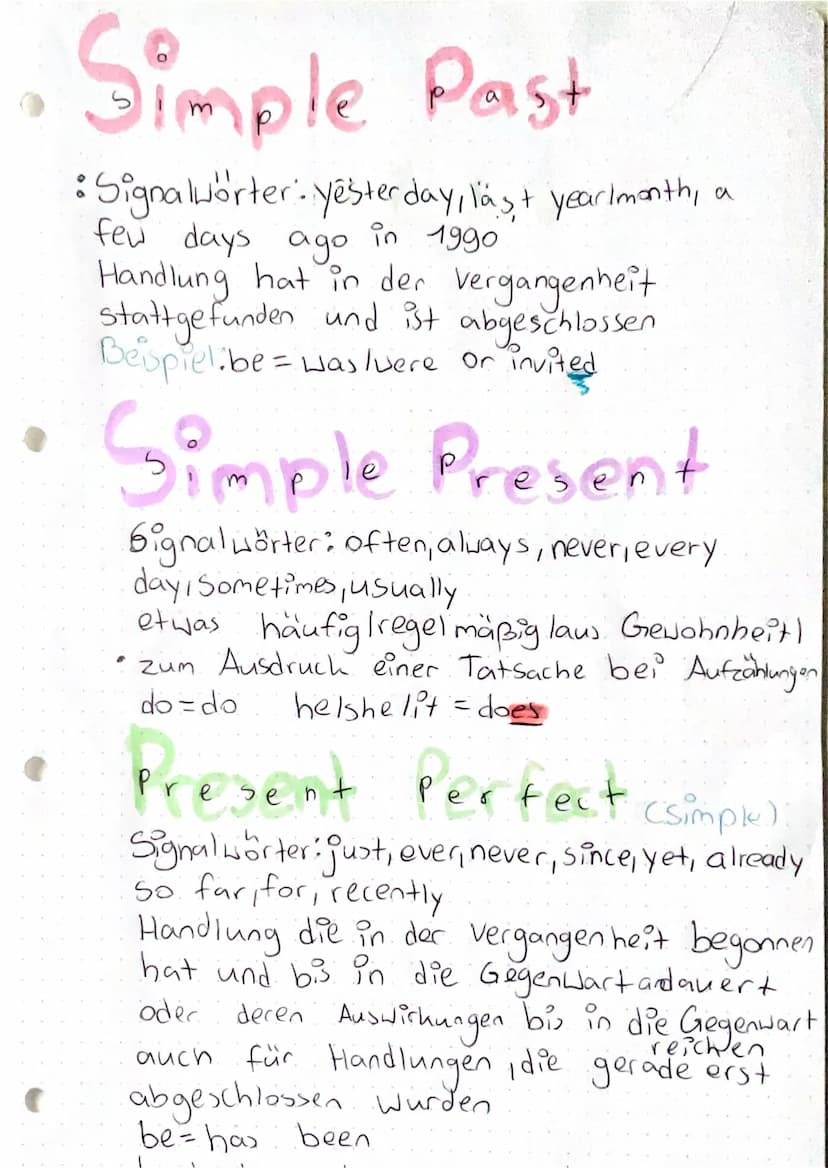 Simple Past
: Signalwörter: yesterday, läst year/month, a
few days ago in 1990
Handlung hat in der Vergangenheit
stattgefunden und ist abgeschlossen
Beispiel: be = was/were or invited
Simple Present
Signalwörter: often, always, never, every
day, sometimes, usually
etwas häufig/regelmäßig (aus Gewohnheit)
• zum Ausdruck einer Tatsache bei Aufzählungen
do = do he/she/it = does
Present Perfect (simple)
Signalwörter: just, ever, never, since, yet, already
so far, for, recently
Handlung die in der Vergangenheit begonnen
hat und bis in die Gegenwart andauert
oder deren Auswirkungen bis in die Gegenwart
reichen
auch für Handlungen, die gerade erst
abgeschlossen wurden
be = has been